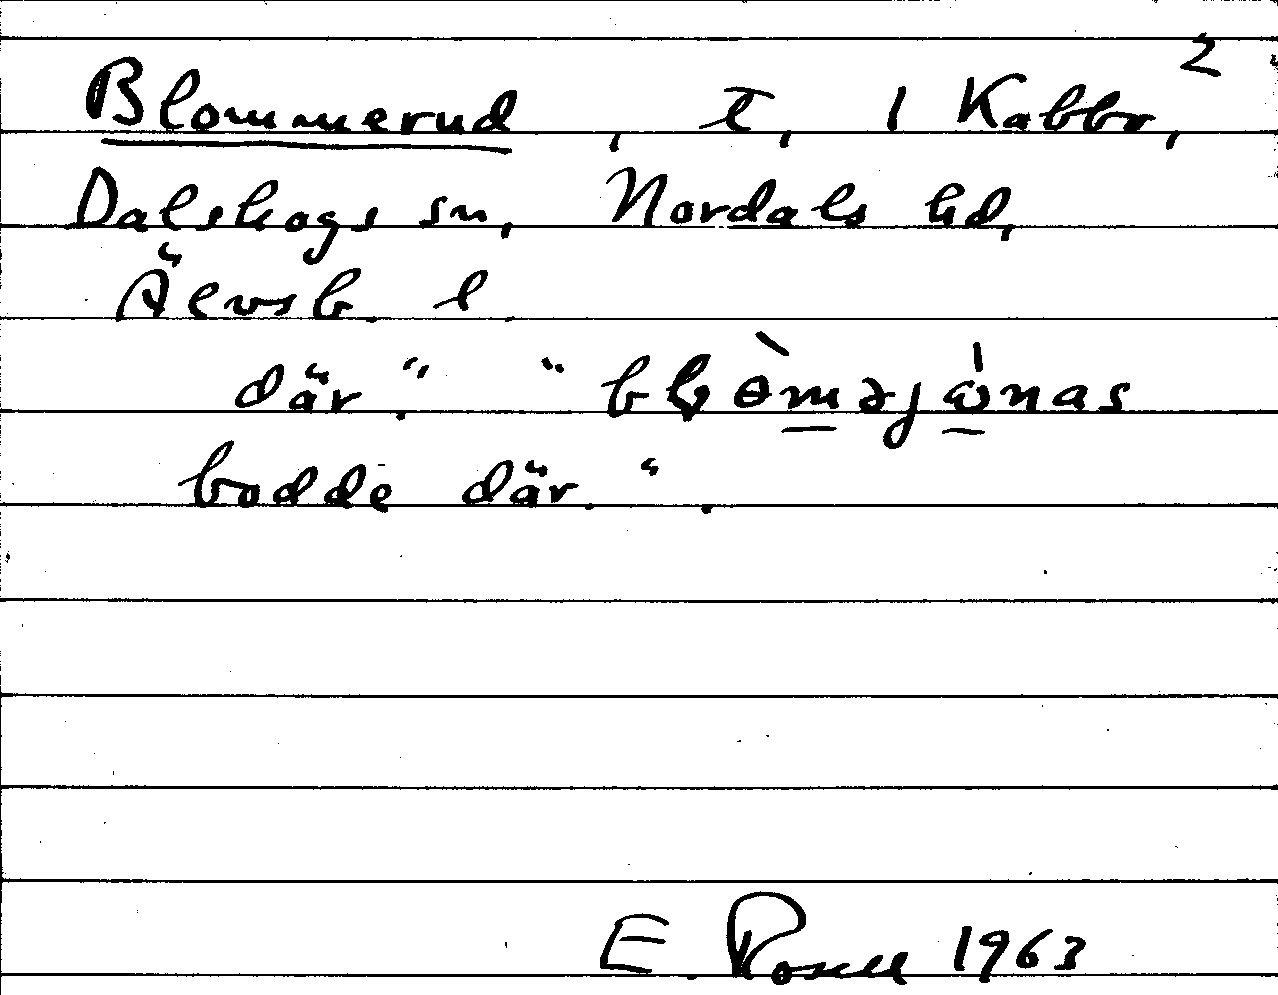 2
Blommerud, t, 1 Kabbo,
Dalskogs sn, Nordals hd,
Älvsb. l
där." "bḷòməjónas
bodde där.".
E. Rosell 1963